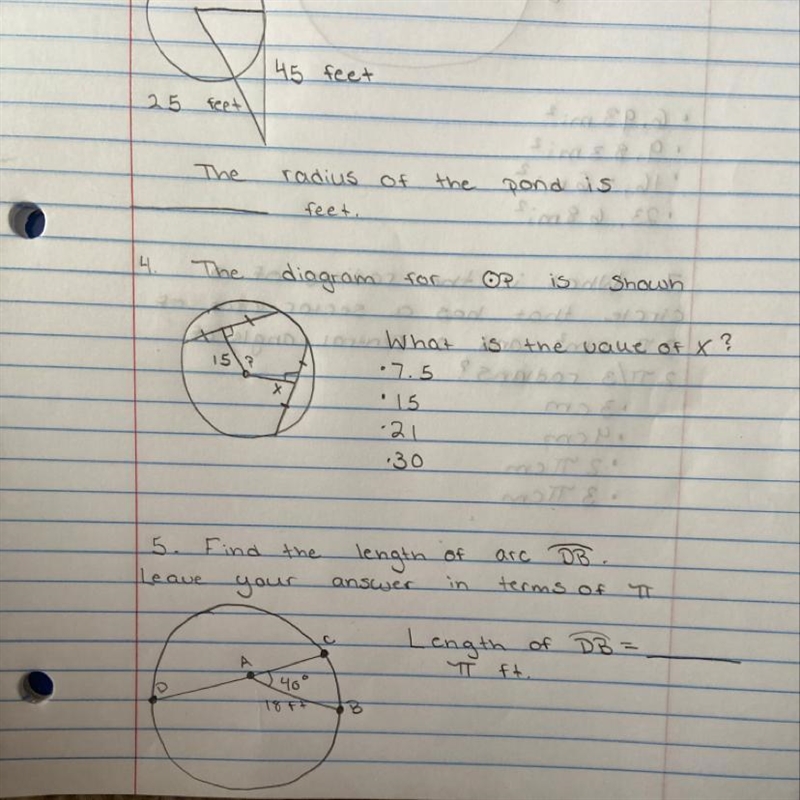 45 feet
25 feet
The radius of the pond is
______ feet.
4. The diagram for ⊙P is shown
x x
15 ?
x
What is the vaue of x?
· 7.5
· 15
· 21
· 30
5. Find the length of arc DB.
Leave your answer in terms of π
C
A
40°
D
18 ft
B
Length of DB = ______
π ft.